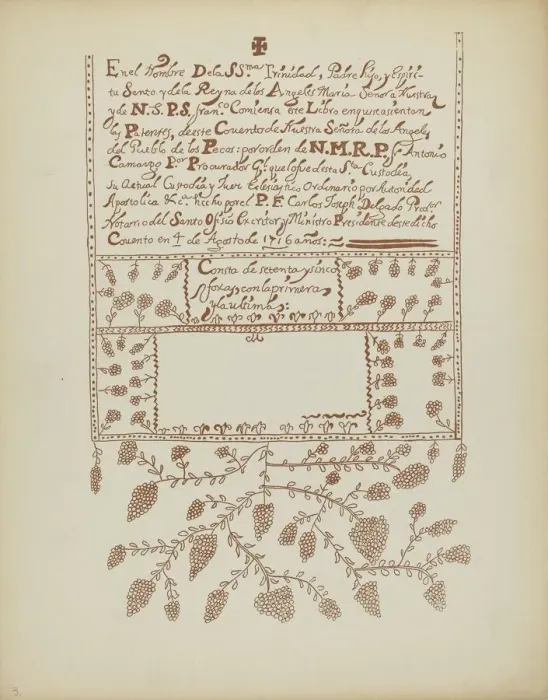 En el Nombre Dela SS.ma Trinidad, Padre Hijo, y Espiri-
tu Santo y dela Reyna de los Angeles Maria Señora Nuestra
y de N.S.P.S. Fran.co Comiensa este Libro en que se asientan
las Patentes, de este Convento de Nuestra Señora de los Angeles
del Pueblo de los Pecos: por orden de N.M.R.P. Fr. Antonio
Camargo Por Procurador G.l que lo fue desta S.ta Custodia
su Actual Custodia y Juez Eclesiastico Ordinario por Autoridad
Apostolica &c.a hecho por el P. F. Carlos Joseph Delgado
Notario del Santo Ofisio Excritor y Ministro Presidente deste dicho
Covento en 4 de Agosto de 1716 años:
Consta de setenta y sinco
foxas, con la primera
y la ultima:
3.